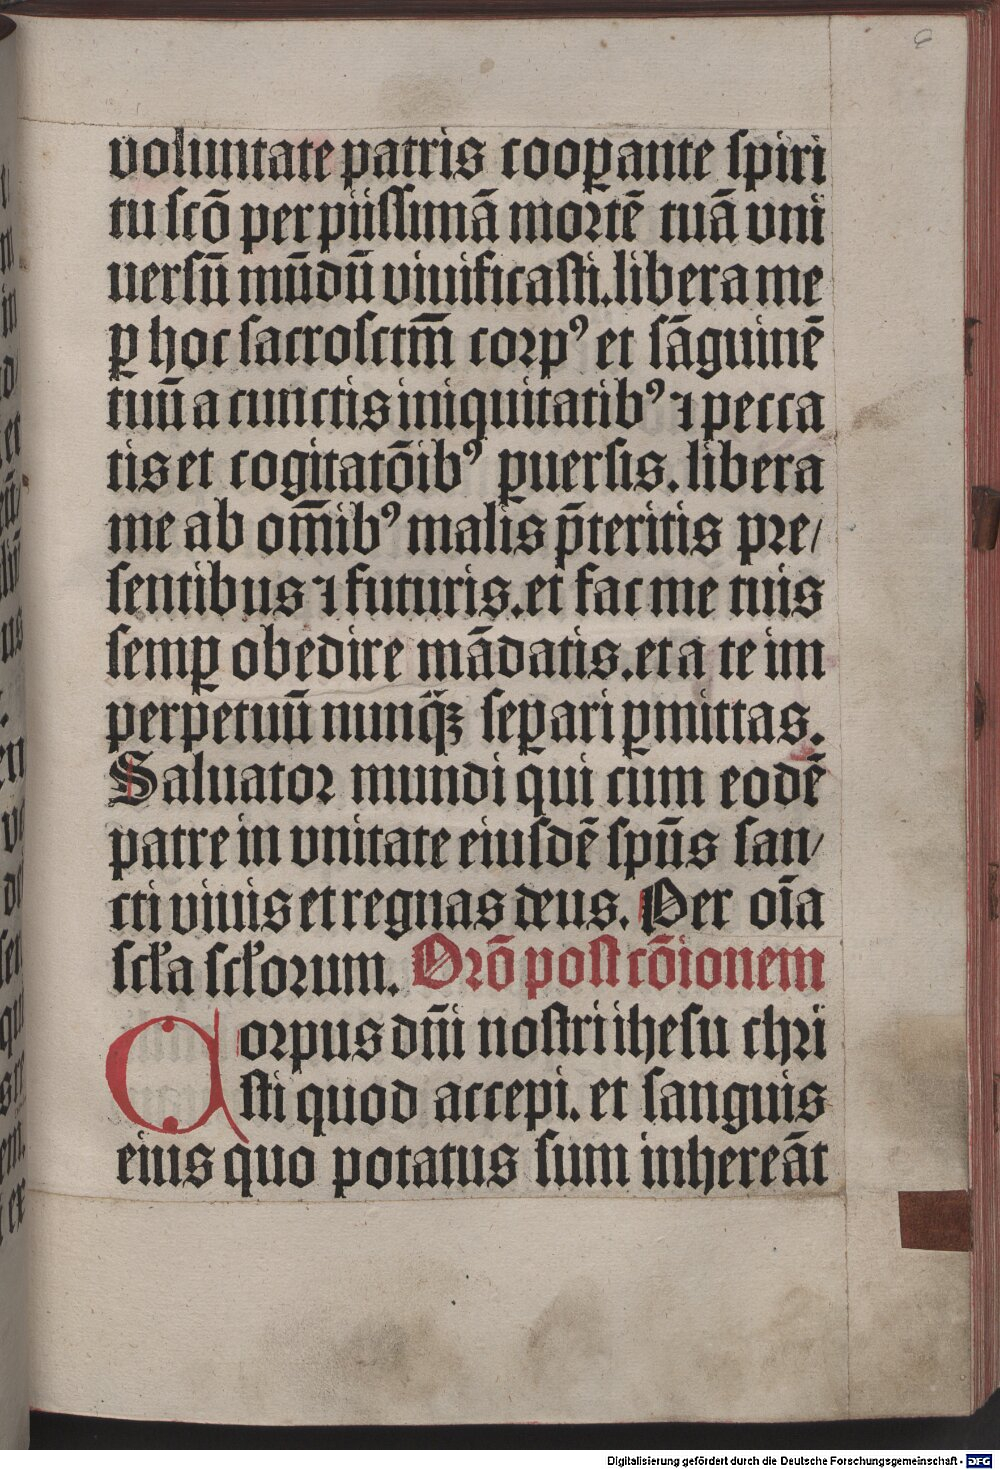 6
voluntate patris cooꝑante spiri
tu scō per piissimā mortē tuā vni
uersū mūdū viuificasti.libera me
ꝑ hoc sacrosctm̄ corpꝰ et sāguinē
tuū a cunctis iniquitatibꝰ ⁊ pecca
tis et cogitatōibꝰ ꝑuersis. libera
me ab om̄ibꝰ malis p̄teritis pre/
sentibus ⁊ futuris.et fac me tuis
semꝑ obedire mādatis.et a te im
perpetuū nunq̄ꝫ seꝑari ꝑmittas.
Saluator mundi qui cum eodē
patre in vnitate eiusdē spūs san/
cti viuis et regnas deus. Per oīa
scl̓a scl̓orum. Orō post cōionem
Corpus dn̄i nostri ihesu chri
sti quod accepi. et sanguis
eius quo potatus sum inhereāt
Digitalisierung gefördert durch die Deutsche Forschungsgemeinschaft - DFG